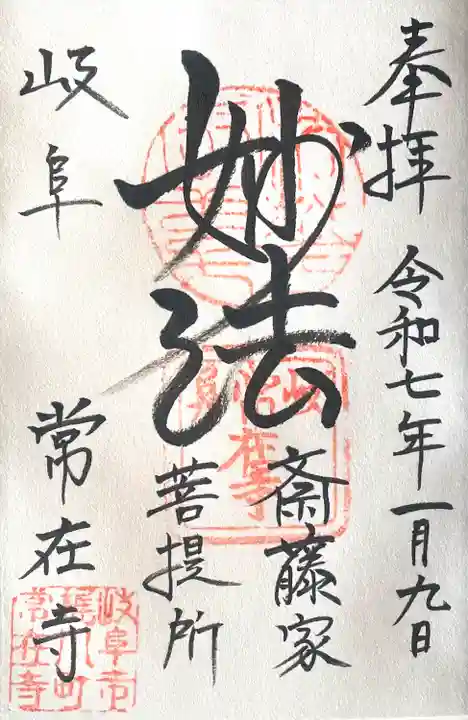 奉拝 令和七年一月九日
妙法
斎藤家
菩提所
岐阜 常在寺
岐阜
常在寺
岐阜市
梶川町
常在寺